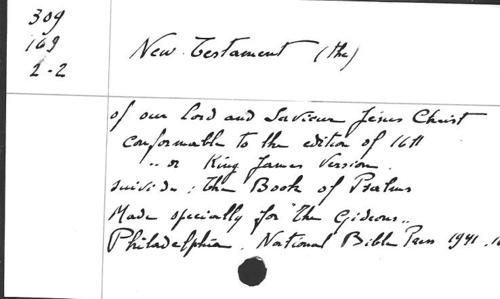 309
169
2-2
New Testament (the)
of our Lord and Saviour Jesus Christ
conformable to the edition of 1611
.. or King James Version.
suivi de : the Book of Psalms
Made specially for "The Gideons..
Philadelphia. National Bible Press 1941.